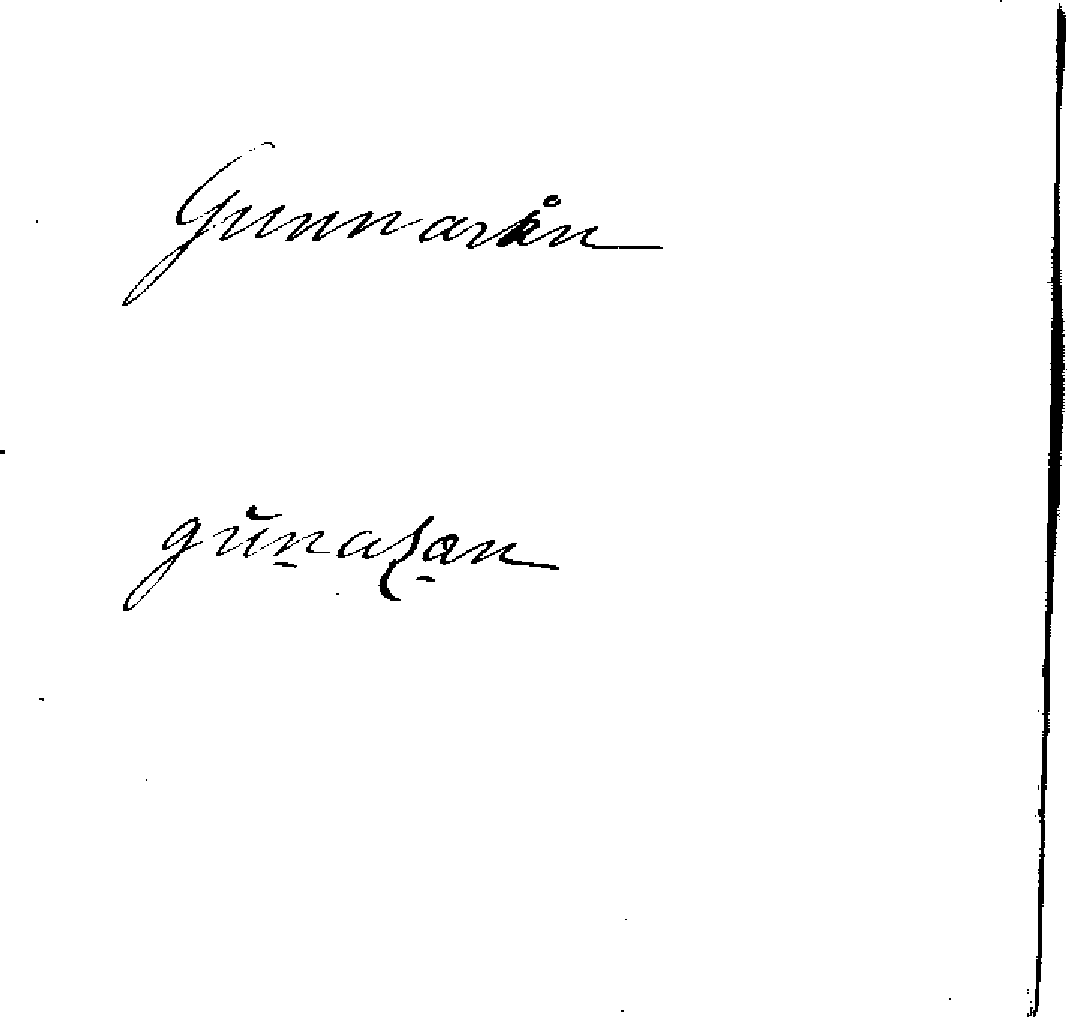 Gunnarsån
gǔn̠aʂa̠n